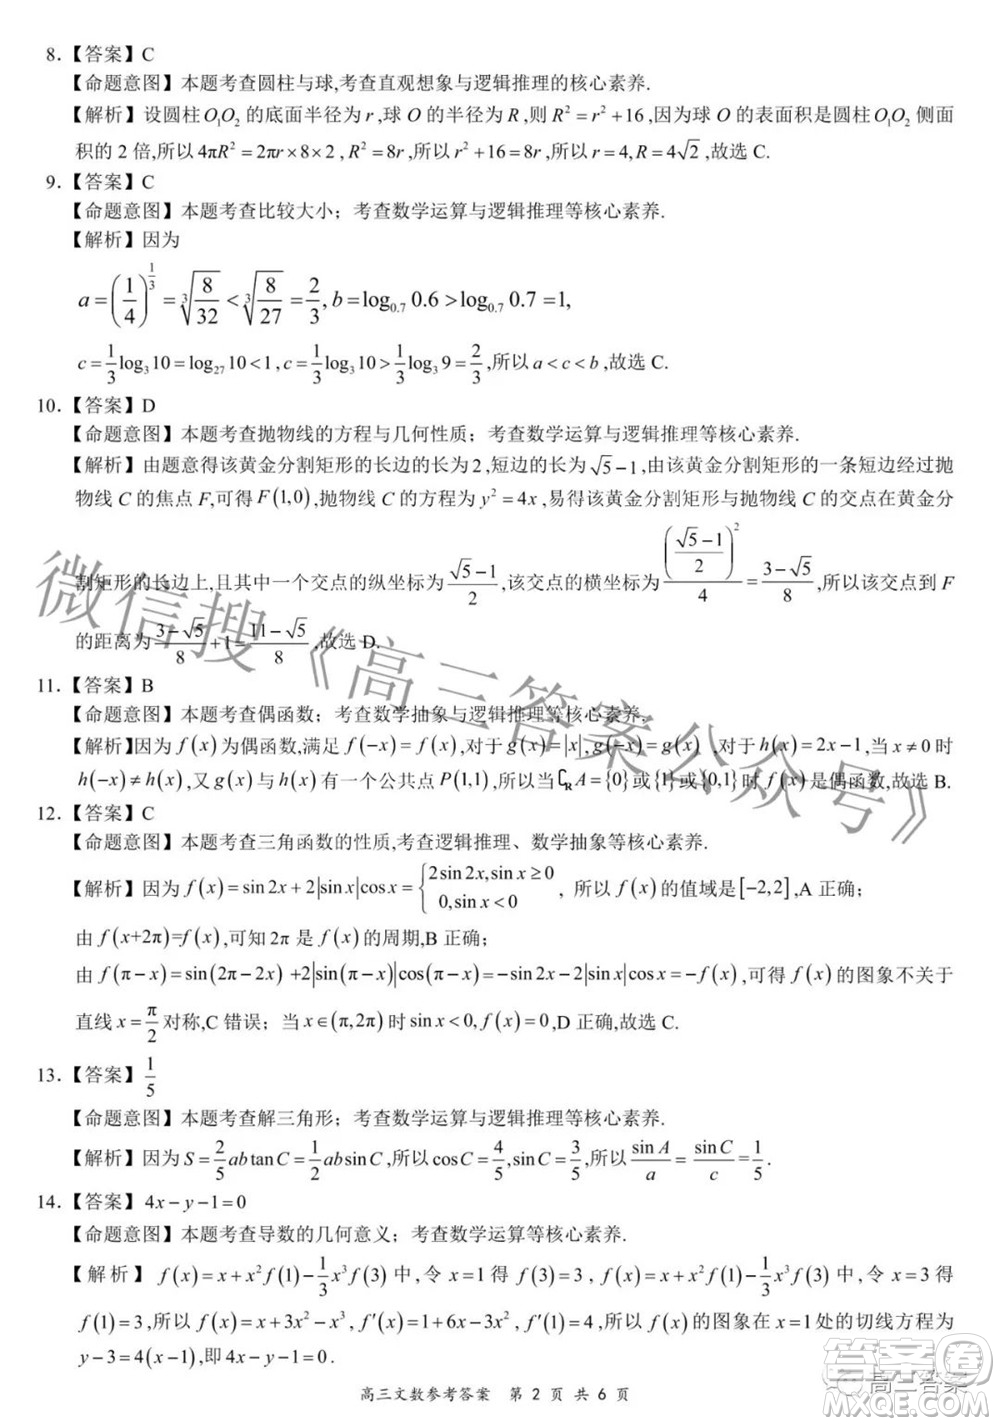 8.【答案】C
【命题意图】本题考查圆柱与球,考查直观想象与逻辑推理的核心素养.
【解析】设圆柱 O₁O₂ 的底面半径为 r,球 O 的半径为 R,则 R²=r²+16,因为球 O 的表面积是圆柱 O₁O₂ 侧面
积的 2 倍,所以 4πR²=2πr×8×2, R²=8r,所以 r²+16=8r,所以 r=4,R=4√2,故选 C.
9.【答案】C
【命题意图】本题考查比较大小；考查数学运算与逻辑推理等核心素养.
【解析】因为
a=(1/4)^(1/3)=∛(8/32)<∛(8/27)=2/3,b=log₀.₇0.6>log₀.₇0.7=1,
c=1/3log₃10=log₂₇10<1,c=1/3log₃10>1/3log₃9=2/3,所以 a<c<b,故选 C.
10.【答案】D
【命题意图】本题考查抛物线的方程与几何性质；考查数学运算与逻辑推理等核心素养.
【解析】由题意得该黄金分割矩形的长边的长为 2,短边的长为 √5−1,由该黄金分割矩形的一条短边经过抛
物线 C 的焦点 F,可得 F(1,0),抛物线 C 的方程为 y²=4x,易得该黄金分割矩形与抛物线 C 的交点在黄金分
割矩形的长边上,且其中一个交点的纵坐标为 (√5−1)/2,该交点的横坐标为 ((√5−1)/2)²/4=(3−√5)/8,所以该交点到 F
的距离为 (3−√5)/8+1=(11−√5)/8,故选 D.
11.【答案】B
【命题意图】本题考查偶函数；考查数学抽象与逻辑推理等核心素养.
【解析】因为 f(x) 为偶函数,满足 f(−x)=f(x),对于 g(x)=|x|,g(−x)=g(x) ,对于 h(x)=2x−1,当 x≠0 时
h(−x)≠h(x),又 g(x) 与 h(x) 有一个公共点 P(1,1),所以当 ∁ᵣA={0}或{1}或{0,1}时 f(x) 是偶函数,故选 B.
12.【答案】C
【命题意图】本题考查三角函数的性质,考查逻辑推理、数学抽象等核心素养.
【解析】因为 f(x)=sin2x+2|sinx|cosx={2sin2x,sinx≥0 0,sinx<0 , 所以 f(x) 的值域是[−2,2],A 正确；
由 f(x+2π)=f(x),可知 2π 是 f(x) 的周期,B 正确；
由 f(π−x)=sin(2π−2x) +2|sin(π−x)|cos(π−x)=−sin2x−2|sinx|cosx=−f(x),可得 f(x) 的图象不关于
直线 x=π/2 对称,C 错误；当 x∈(π,2π) 时 sinx<0,f(x)=0,D 正确,故选 C.
13.【答案】1/5
【命题意图】本题考查解三角形；考查数学运算与逻辑推理等核心素养.
【解析】因为 S=2/5abtanC=1/2absinC,所以 cosC=4/5,sinC=3/5,所以 sinA/a=sinC/c=1/5.
14.【答案】4x−y−1=0
【命题意图】本题考查导数的几何意义；考查数学运算等核心素养.
【解析】f(x)=x+x²f(1)−1/3x³f(3) 中,令 x=1 得 f(3)=3, f(x)=x+x²f(1)−1/3x³f(3) 中,令 x=3 得
f(1)=3,所以 f(x)=x+3x²−x³,f′(x)=1+6x−3x², f′(1)=4,所以 f(x) 的图象在 x=1 处的切线方程为
y−3=4(x−1),即 4x−y−1=0.
高三文数参考答案 第 2 页 共 6 页
微信搜《高三答案公众号》
答案圈
高三答案
MXQE.COM